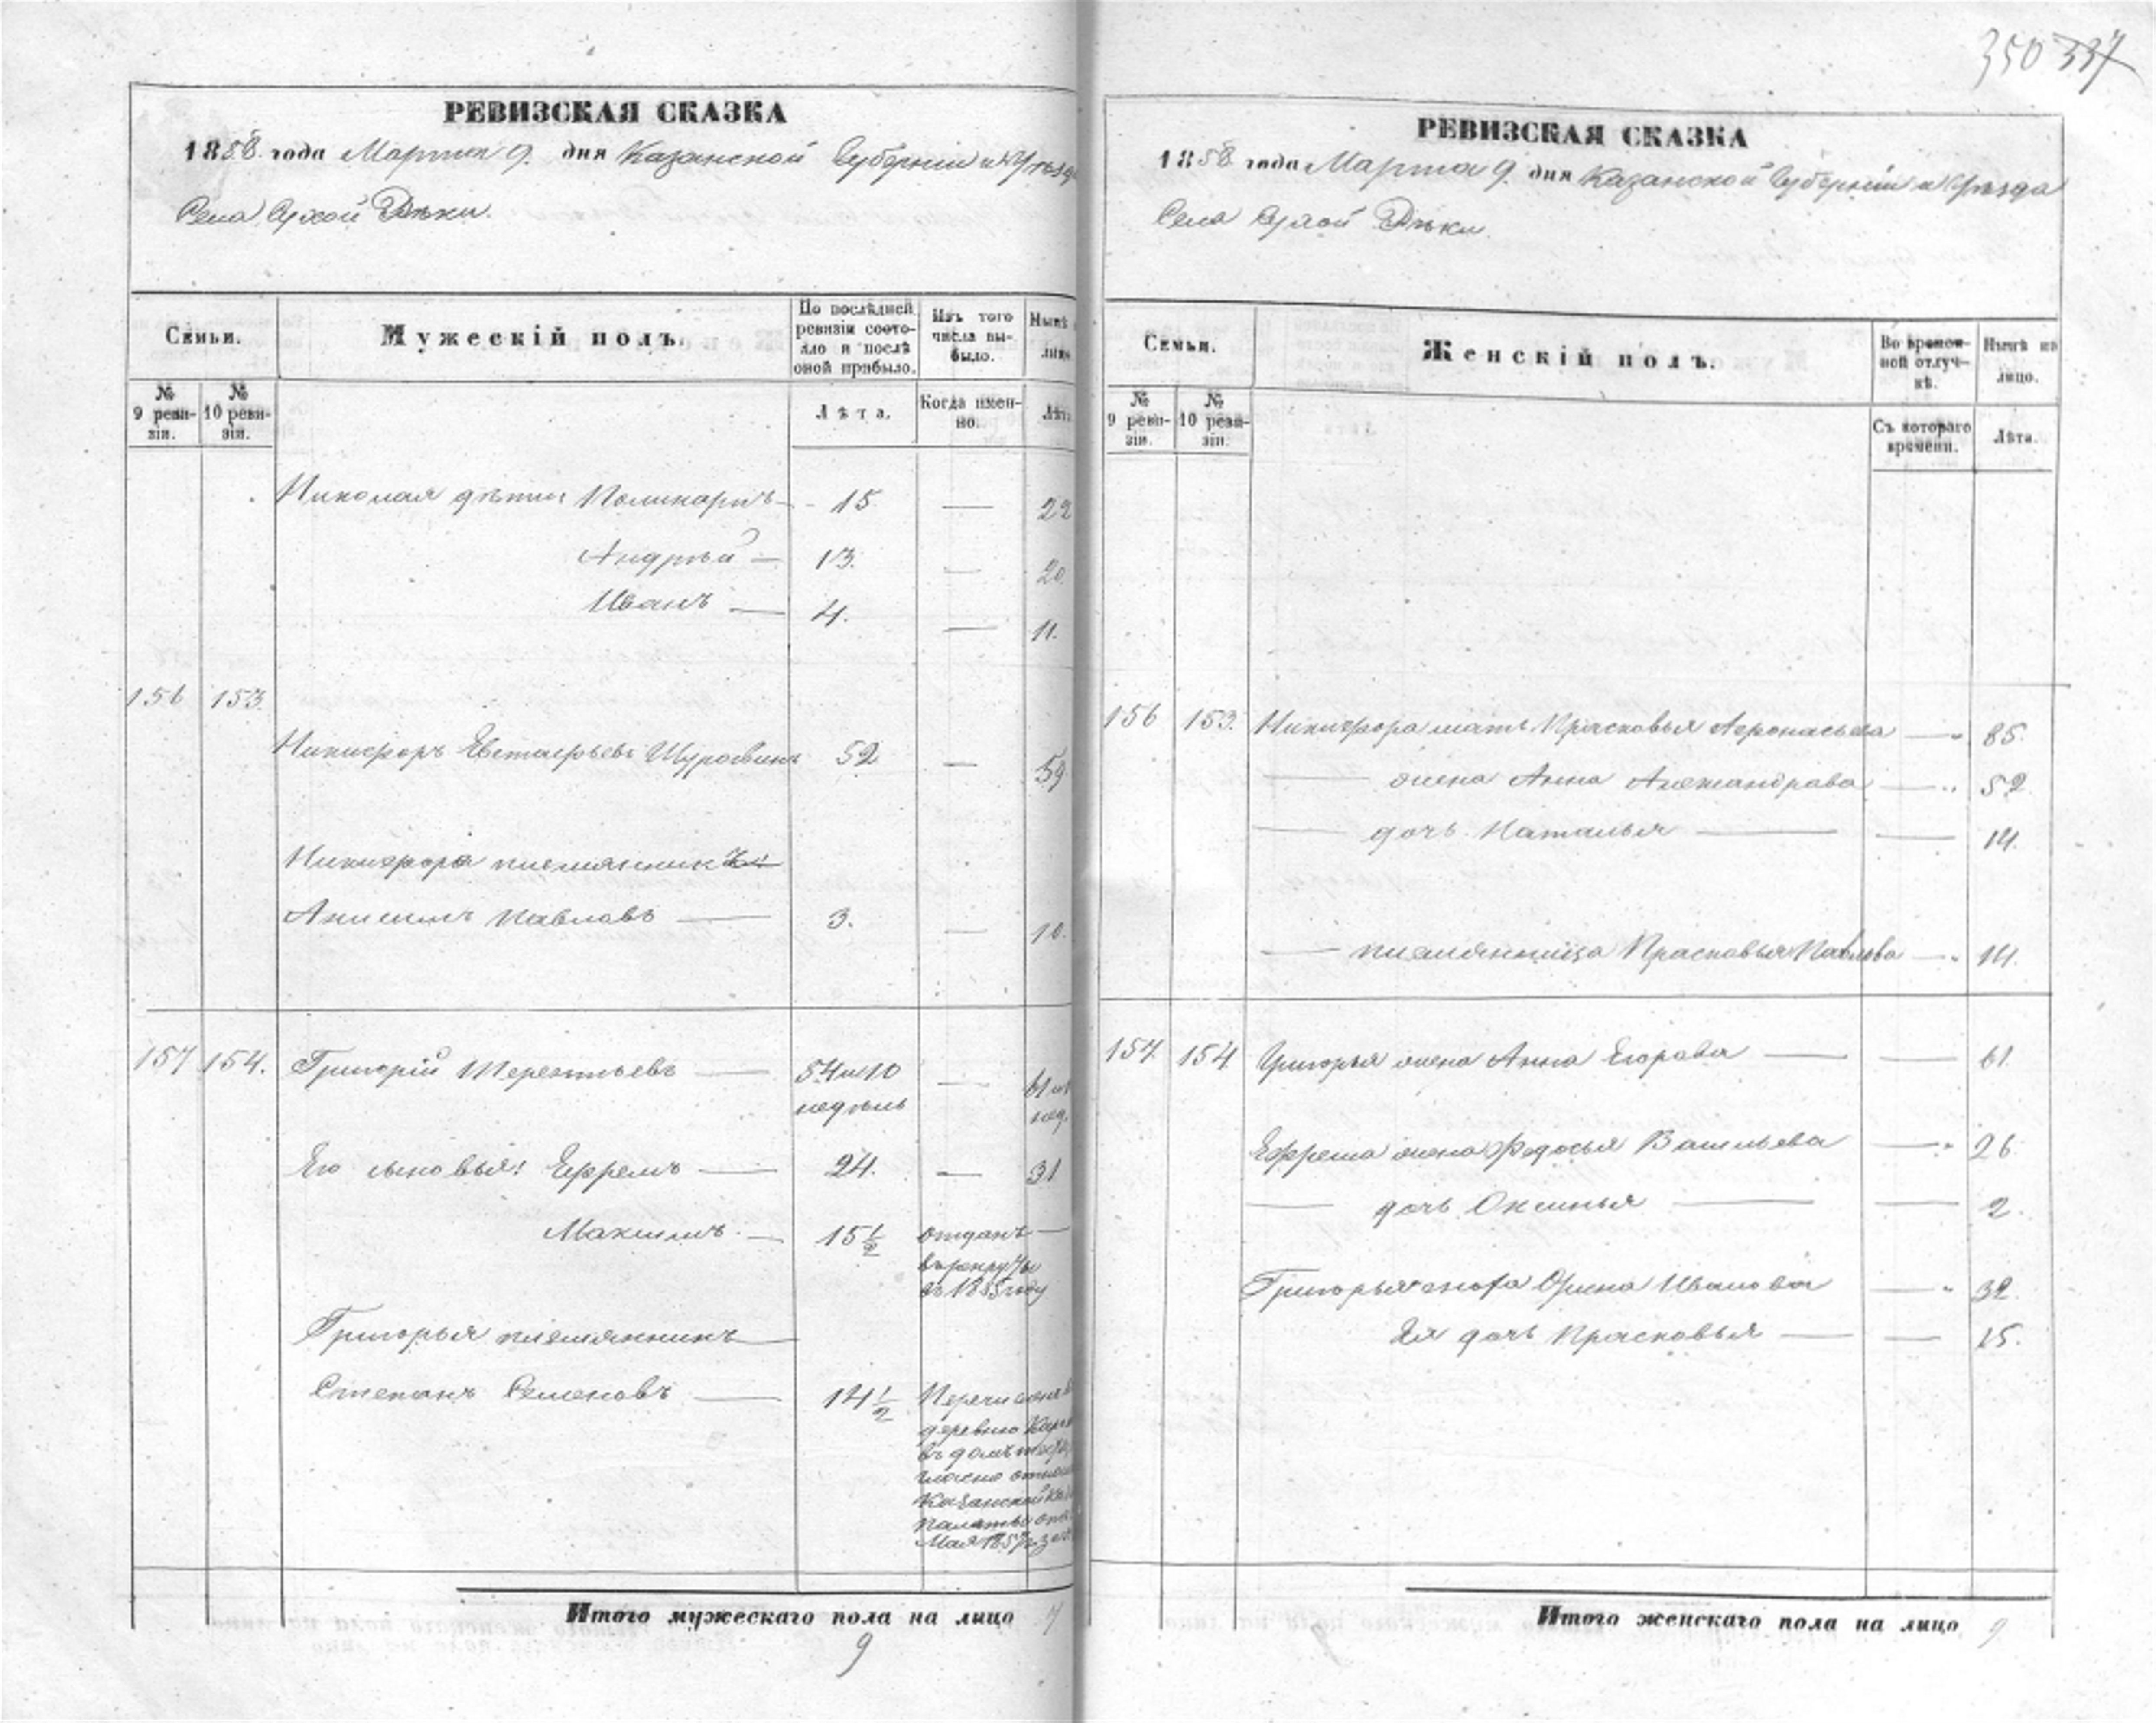 350 337
РЕВИЗСКАЯ СКАЗКА
1858 года Марта 9. дня Казанской Губерніи и Уѣзда
Села Сухой Рѣки.
Семьи.
Мужескій полъ.
По послѣдней ревизіи состояло и послѣ оной прибыло.
Изъ того числа выбыло.
Нынѣ
лицо
№ 9 ревизіи.
№ 10 ревизіи.
Лѣта.
Когда именно.
Лѣта
Николая дѣти Поликарпъ — 15 — 22
Андрѣй — 13. — 20.
Иванъ — 4. — 11.
156 153.
Никифоръ Евстафьевъ 52 — 59
Никифора племянник
Анисимъ Павловъ — 3. — 10.
157 154. Григорій Терентьевъ — 54 и 10 недѣль — 61 и
нед.
Его сыновья: Ефремъ — 24. — 31
Максимъ. — 15 1/2 отданъ —
въ рекруты
въ 1855 году
Григорья племянникъ —
Степанъ Семеновъ — 14 1/2 Перечислен
деревню
въ домъ
гласно
Казанской
Палаты
Мая 1857
Итого мужескаго пола на лицо 7
9
РЕВИЗСКАЯ СКАЗКА
1858 года Марта 9. дня Казанской Губерніи и Уѣзда
Села Сухой Рѣки.
Семьи.
Женскій полъ.
Во временной отлучкѣ.
Нынѣ на лицо.
№ 9 ревизіи.
№ 10 ревизіи.
Съ котораго времени.
Лѣта.
156 153. Никифора мать Прасковья Афонасьева — 85.
— жена Анна Александрова — 52
— дочь Наталья — — 14.
— племянница Прасковья Павлова — 14.
157. 154 Григорья жена Анна Егорова — — 61.
Ефрема жена Федосья Васильева — 26
— дочь Оксинья — — 2.
Григорья сноха Орина Иванова — 32
Ея дочь Прасковья — — 15.
Итого женскаго пола на лицо 9